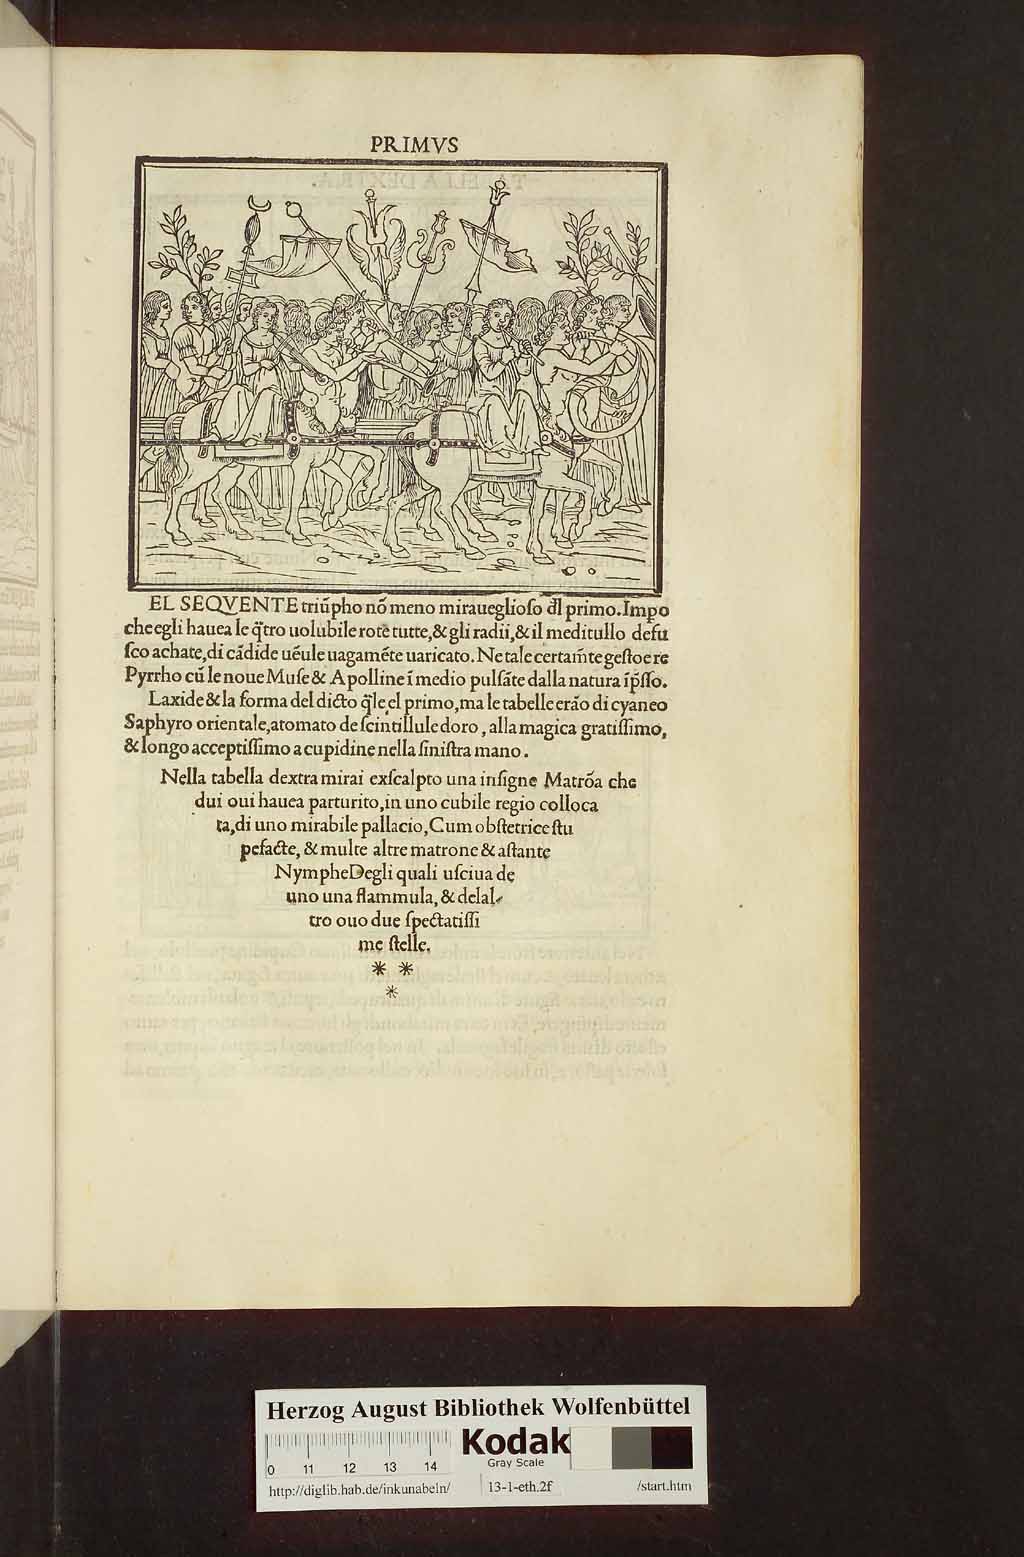 PRIMVS
EL SEQVENTE triūpho nō meno miraueglioſo đl primo. Impo
che egli hauea le q̄tro uolubile rote tutte, & gli radii, & il meditullo defu
ſco achate, di cādide uēule uagamēte uaricato. Ne tale certam̄te geſtoe re
Pyrrho cū le noue Muſe & Apolline ī medio pulſāte dalla natura īp̄ſſo.
Laxide & la forma del dicto q̄le el primo, ma le tabelle erāo di cyaneo
Saphyro orientale, atomato de ſcintillule doro, alla magica gratiſſimo,
& longo acceptiſſimo a cupidine nella ſiniſtra mano.
Nella tabella dextra mirai exſcalpto una inſigne Matrōa che
dui oui hauea parturito, in uno cubile regio colloca
ta, di uno mirabile pallacio, Cum obſtetrice ſtu
pefacte, & multe altre matrone & aſtante
Nymphe Degli quali uſciua de
uno una flammula, & delal-
tro ouo due ſpectatiſſi
me ſtelle.
* *
*
Herzog August Bibliothek Wolfenbüttel
Kodak
Gray Scale
0 11 12 13 14
http://diglib.hab.de/inkunabeln/ 13-1-eth.2f /start.htm